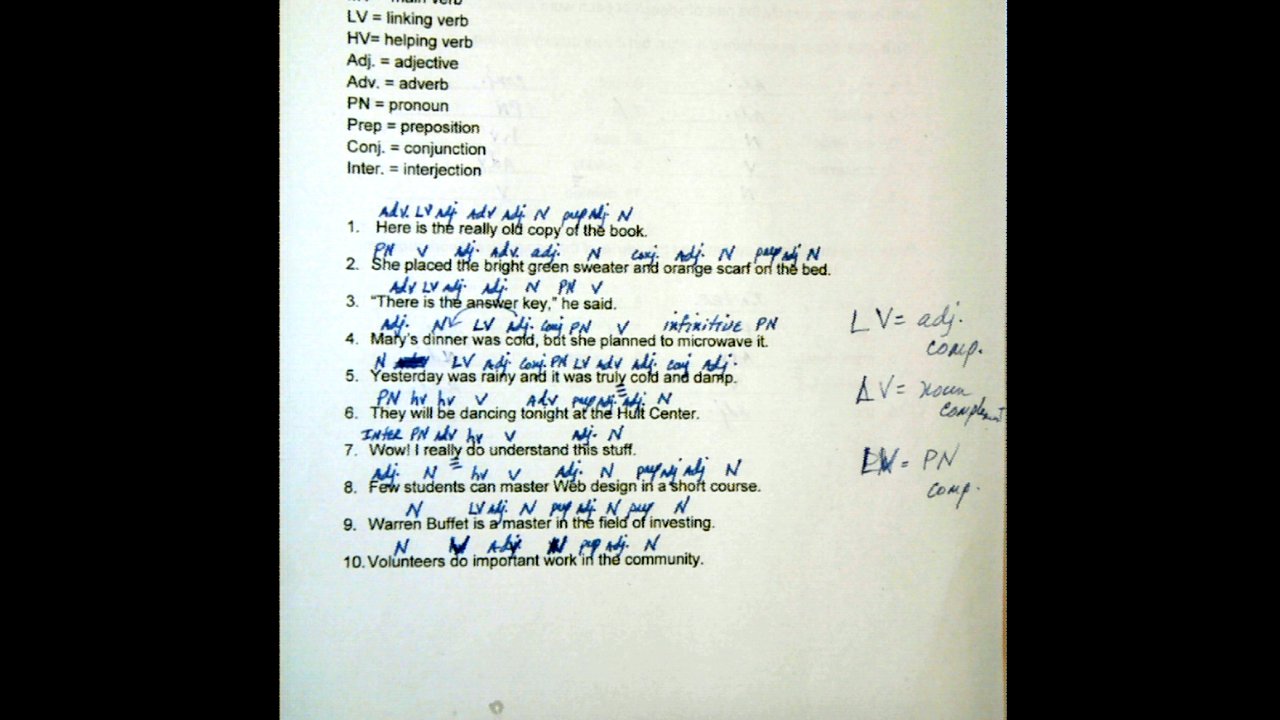 LV = linking verb
HV= helping verb
Adj. = adjective
Adv. = adverb
PN = pronoun
Prep = preposition
Conj. = conjunction
Inter. = interjection
Adv. LV Adj. Adv Adj. N prep Adj. N
1. Here is the really old copy of the book.
PN V Adj. Adv. adj. N conj. Adj. N prep adj N
2. She placed the bright green sweater and orange scarf on the bed.
Adv LV adj Adj. N PN V
3. "There is the answer key," he said.
Adj. N LV Adj. conj PN V infinitive PN
4. Mary's dinner was cold, but she planned to microwave it.
N LV Adj. conj. PN LV Adv Adj. conj Adj.
5. Yesterday was rainy and it was truly cold and damp.
PN hv hv V Adv prep Adj. Adj. N
6. They will be dancing tonight at the Hult Center.
Inter PN adv hv V Adj. N
7. Wow! I really do understand this stuff.
Adj. N hv V Adj. N prep Adj adj N
8. Few students can master Web design in a short course.
N LV Adj. N prep Adj. N prep N
9. Warren Buffet is a master in the field of investing.
N Adj. N prep Adj. N
10. Volunteers do important work in the community.
LV = adj.
comp.
LV = noun
complement
LV = PN
comp.